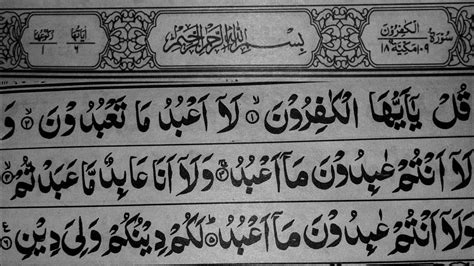 سُوْرَةُ الْكٰفِرُوْنَ مَكِّيَّةٌ ١٠٩ ١٨
بِسْمِ اللّٰهِ الرَّحْمٰنِ الرَّحِيْمِ
اٰيَاتُهَا ٦
رُكُوْعُهَا ١
قُلْ يٰٓاَيُّهَا الْكٰفِرُوْنَ ۙ﴿١﴾ لَاۤ اَعْبُدُ مَا تَعْبُدُوْنَ ۙ﴿٢﴾ وَ
لَاۤ اَنْتُمْ عٰبِدُوْنَ مَاۤ اَعْبُدُ ۚ﴿٣﴾ وَلَاۤ اَنَا عَابِدٌ مَّا عَبَدْتُّمْ ۙ﴿٤﴾
وَلَاۤ اَنْتُمْ عٰبِدُوْنَ مَاۤ اَعْبُدُ ؕ﴿٥﴾ لَكُمْ دِيْنُكُمْ وَلِيَ دِيْنِ ﴿٦﴾ ع